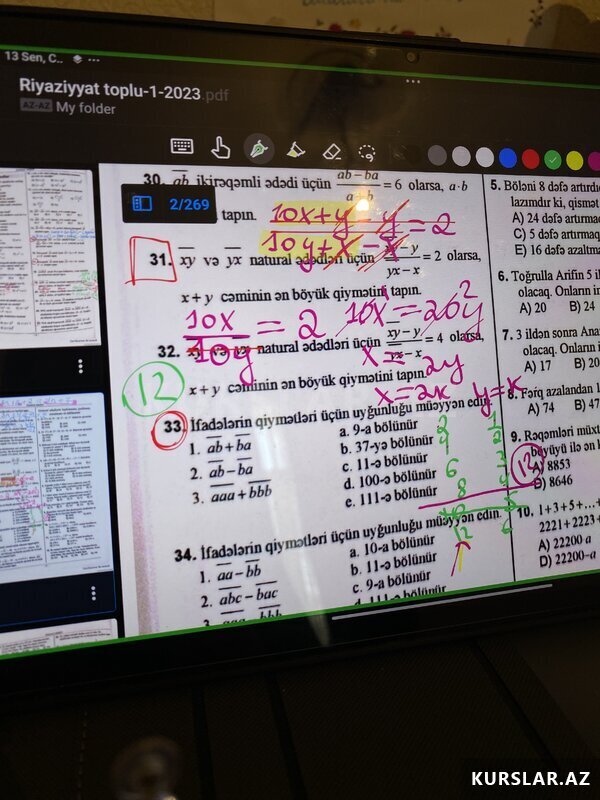 13 Sen, C..
Riyaziyyat toplu-1-2023.pdf
AZ-AZ My folder
2/269
30. ab ikirəqəmli ədədi üçün ab - ba / a b = 6 olarsa, a·b
tapın.
10x+y-y / 10y+x-x = 2
31. xy və yx natural ədədləri üçün xy - y / yx - x = 2 olarsa,
x + y cəminin ən böyük qiymətini tapın.
10x / 10y = 2 10x = 20y 2
x = 2y
32. xy və yx natural ədədləri üçün xy - y / yx - x = 4 olarsa,
12
x + y cəminin ən böyük qiymətini tapın.
x = 2k y = k
33. İfadələrin qiymətləri üçün uyğunluğu müəyyən edin.
1. ab + ba
2. ab - ba
3. aaa + bbb
a. 9-a bölünür
b. 37-yə bölünür
c. 11-ə bölünür
d. 100-ə bölünür
e. 111-ə bölünür
2 1
4 2
6 3
8 4
10 5
12 6
12
34. İfadələrin qiymətləri üçün uyğunluğu müəyyən edin.
1. aa - bb
2. abc - bac
3. aaa - bbb
a. 10-a bölünür
b. 11-ə bölünür
c. 9-a bölünür
d. 111-ə bölünür
5. Böləni 8 dəfə artırdı
lazımdır ki, qismət
A) 24 dəfə artırmaq
C) 5 dəfə artırmaq
E) 16 dəfə azaltma
6. Toğrulla Arifin 5 il
olacaq. Onların in
A) 20 B) 24
7. 3 ildən sonra Ana
olacaq. Onların
A) 17 B) 20
8. Fərq azalandan 1
A) 74 B) 47
9. Rəqəmləri müxt
böyüyü ilə ən k
A) 8853
D) 8646
10. 1+3+5+...+
2221+2223+
A) 22200 a
D) 22200-a
KURSLAR.AZ